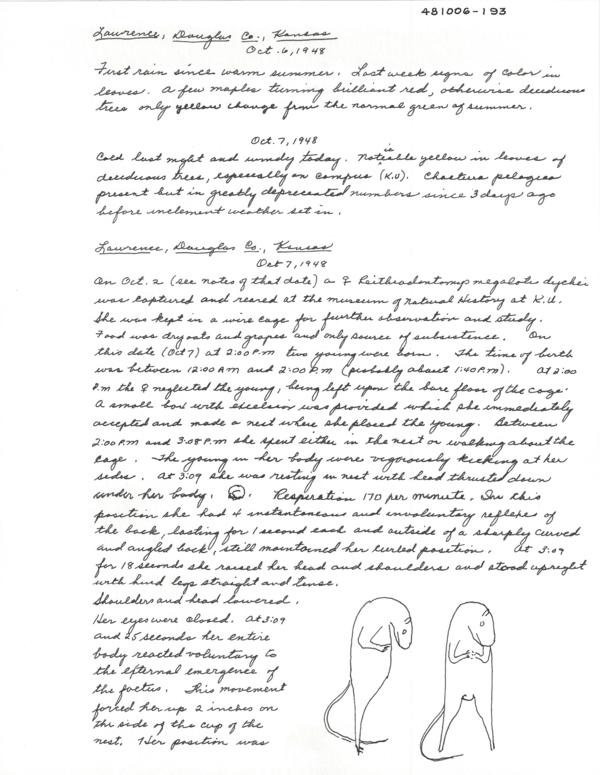 481006-193
Lawrence, Douglas Co., Kansas
Oct. 6, 1948
First rain since warm summer. Last week signs of color in
leaves. A few maples turning brilliant red, otherwise deciduous
trees only yellow change from the normal green of summer.
Oct. 7, 1948
Cold last night and windy today. Noticiable yellow in leaves of
deciduous trees, especially on campus (K.U). Chaetura pelagica
present but in greatly depreceated numbers since 3 days ago
before inclement weather set in.
Lawrence, Douglas Co., Kansas
Oct 7, 1948
On Oct. 2 (see notes of that date) a ♀ Reithrodontomys megalotis dychei
was captured and reared at the museum of Natural History at K.U.
She was kept in a wire cage for further observation and study.
Food was dry oats and grapes and only source of subsistence. On
this date (Oct 7) at 2:00 P.m two young were born. The time of birth
was between 12:00 A m and 2:00 P.m (probably about 1:40 P.m). At 2:00
P.m the ♀ neglected the young, being left upon the bare floor of the cage.
A small box with excelsior was provided which she immediately
accepted and made a nest where she placed the young. Between
2:00 P.m and 3:08 P.m she spent either in the nest or walking about the
cage. The young in her body were vigorously kicking at her
sides. At 3:09 she was resting in nest with head thrusted down
under her body. Respiration 170 per minute. In this
position she had 4 instantaneous and involuntary reflexes of
the back, lasting for 1 second each and outside of a sharply curved
and angled back, still maintained her curled position. At 3:09
for 18 seconds she raised her head and shoulders and stood upright
with hind legs straight and tense.
Shoulders and head lowered.
Her eyes were closed. At 3:09
and 25 seconds her entire
body reacted voluntary to
the external emergence of
the foetus. This movement
forced her up 2 inches on
the side of the cup of the
nest. Her position was